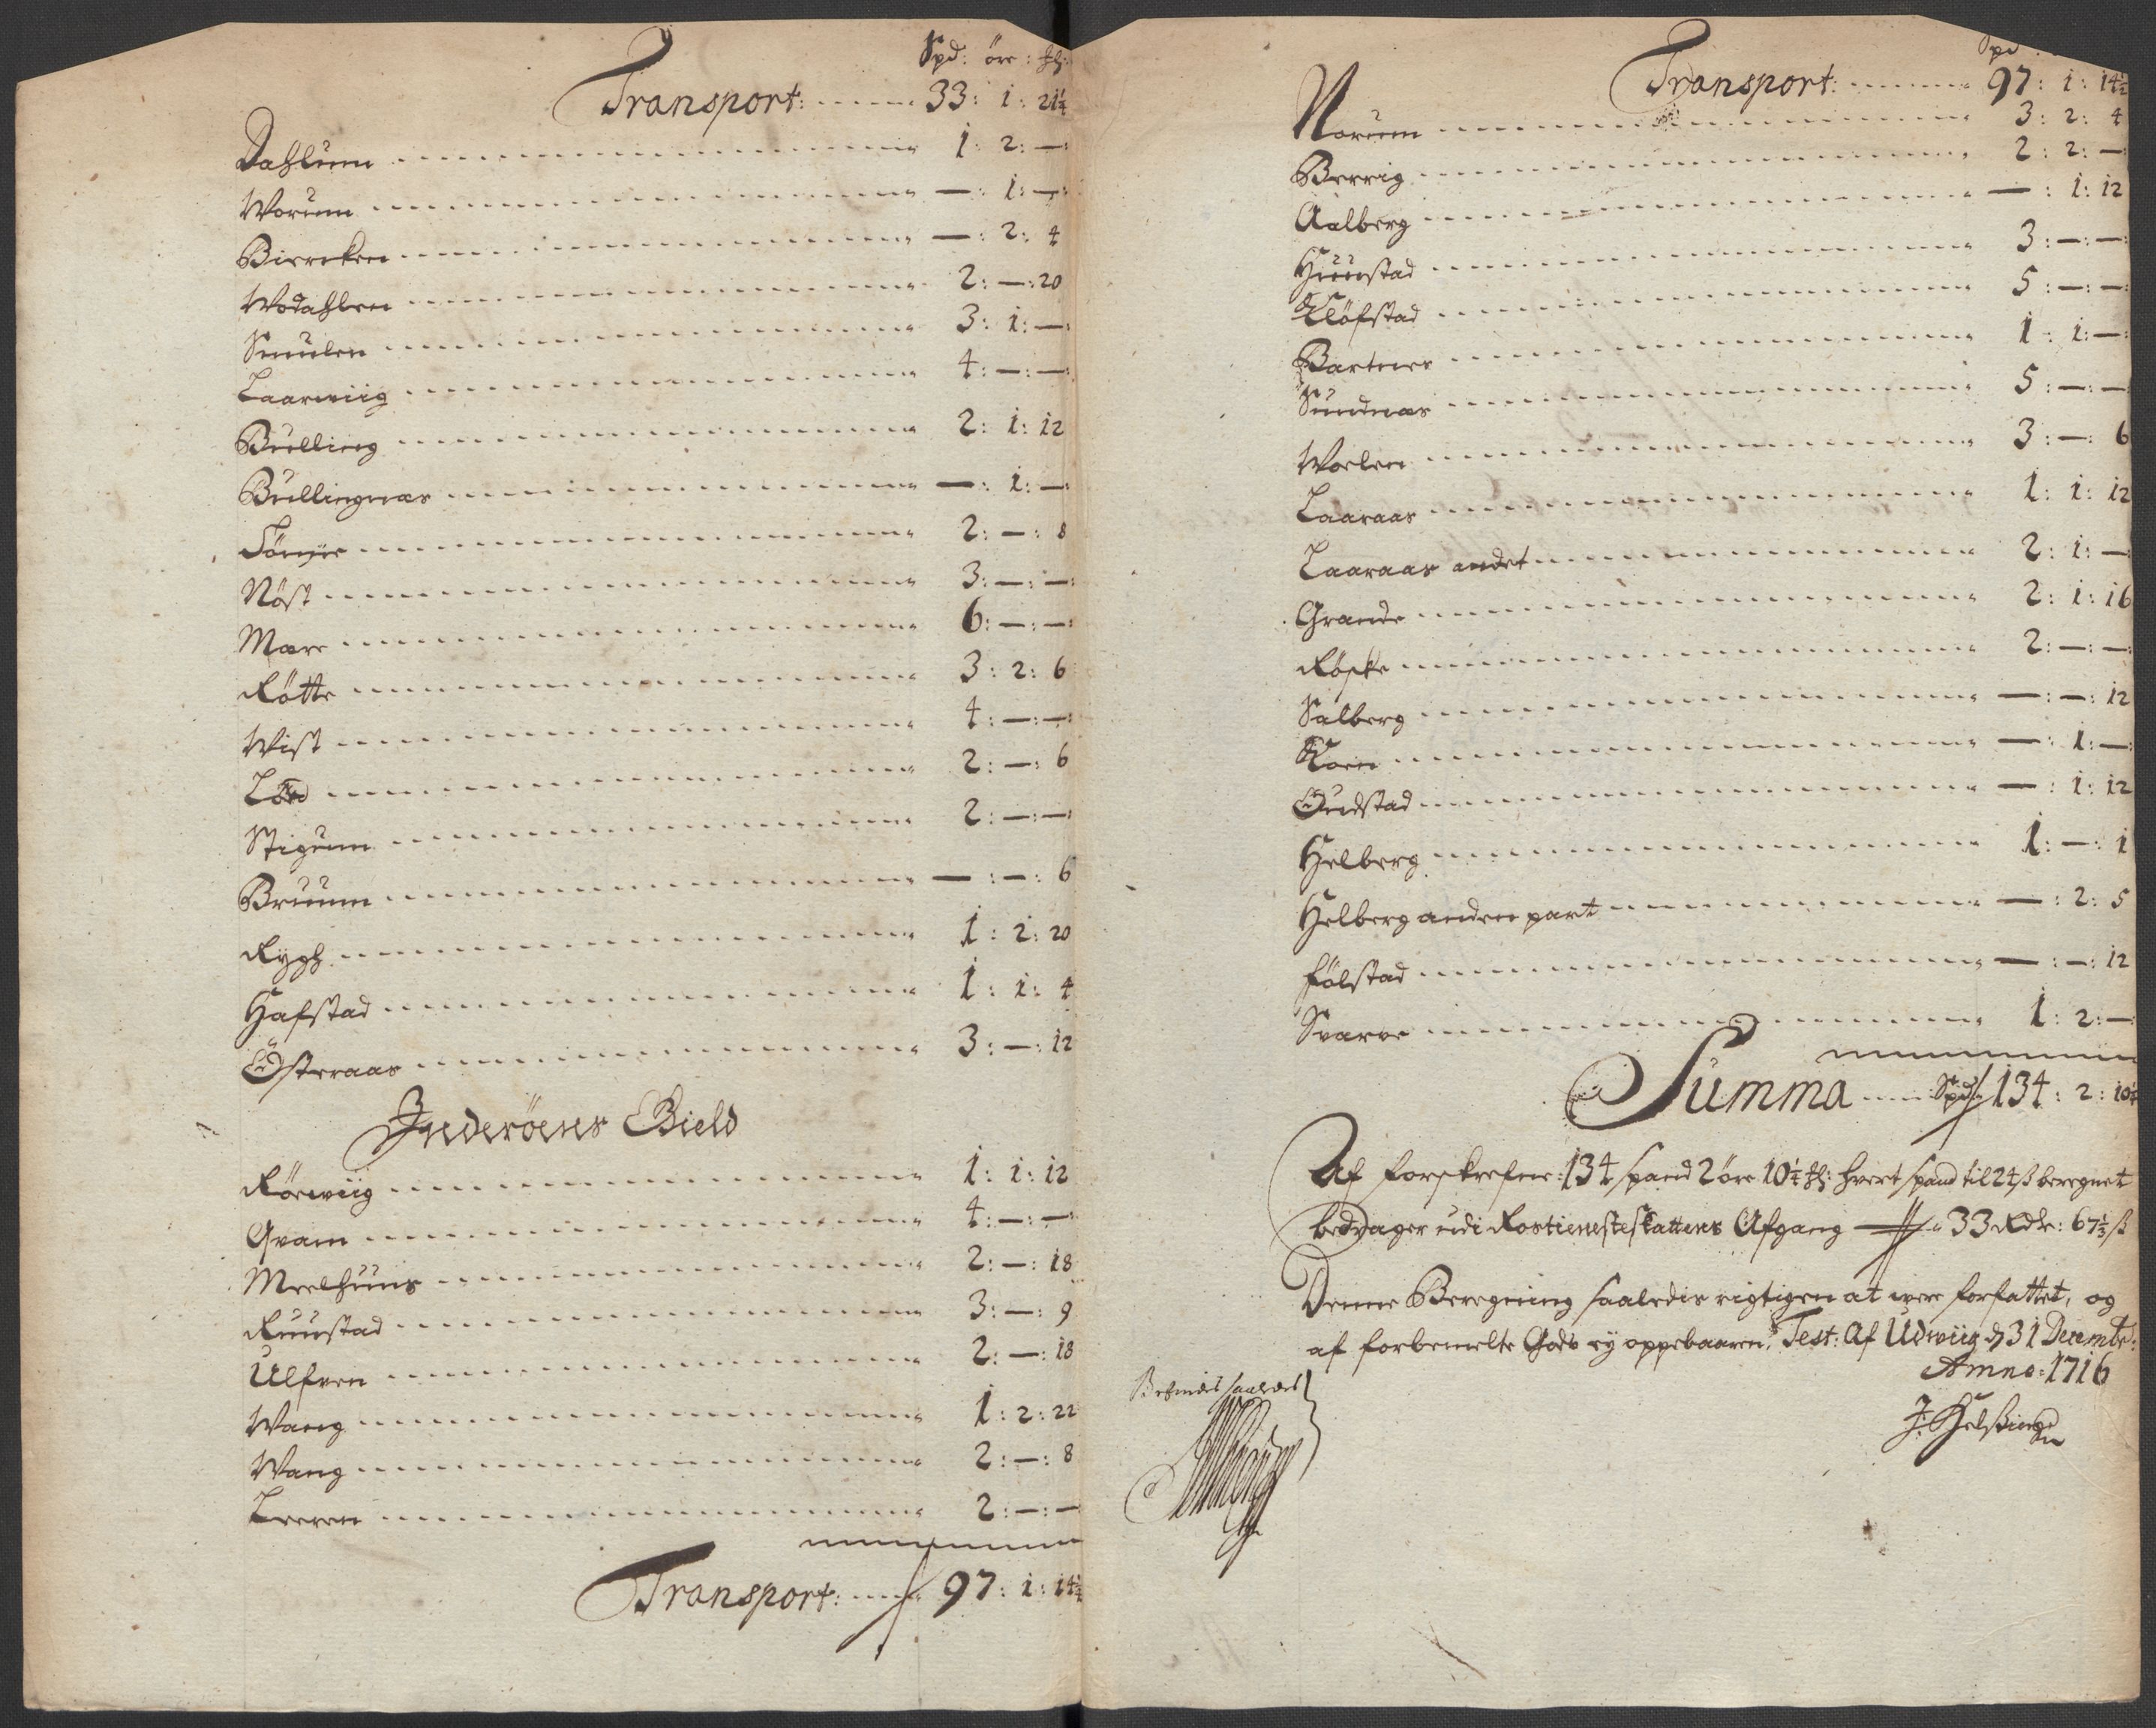 Spd: öre:
Transport: 33: 1: 21¼
Dahlum 1: 2: —:
Worum —: 1: —:
Biercken —: 2: 4
Wodahlen 2: —: 20
Smulen 3: 1: —:
Laarwiig 4: —: —:
Bulling 2: 1: 12
Bullingnæs —: 1: —:
2: —: 8
Nöst 3: —: —:
Mære 6: —: —:
Röttr 3: 2: 6
Wist 4: —: —:
2: —: 6
Stigum 2: —: —:
Bruum —: —: 6
Rygh 1: 2: 20
Hafstad 1: 1: 4
Österaas 3: —: 12
Inderöens Gield
Rörwiig 1: 1: 12
Qvam 4: —: —:
Meelhuus 2: —: 18
Ruustad 3: —: 9
Ulfven 2: —: 18
Wang 1: 2: 22
Wang 2: —: 8
Leeren 2: —: —
Transport: 97: 1: 14½
Spd
Transport: 97: 1: 14½
Norum 3: 2: 4
Berrig 2: 2: —:
Aalberg —: 1: 12
Huustad 3: —: —:
Kløfstad 5: —: —:
Bartnes 1: 1: —:
Sundnæs 5: —: —
Woelen 3: —: 6
Laaraas 1: 1: 12
Laaraas andet 2: 1: —
Grande 2: 1: 16
Röske 2: —: —:
Salberg —: —: 12
Koen —: 1: —:
Oudstad —: 1: 12
Helberg 1: —: 1
Helberg anden part —: 2: 5
Følstad —: —: 12
Svarve 1: 2: —:
Summa Spd 134: 2: 10¼
Af forskrefne: 134 spand 2 öre 10¼ hvert spand til 24 ß beregnet
bedrager udi Rostienesteskattens Afgang 33 Rdr: 67½ ß
Denne Beregning saaledis rigtigen at were forfattet, og
af forbemelte Gods ey oppebaaren, Test: Af Udwiig d 31 Decembr:
Anno: 1716
Befindes saaledes